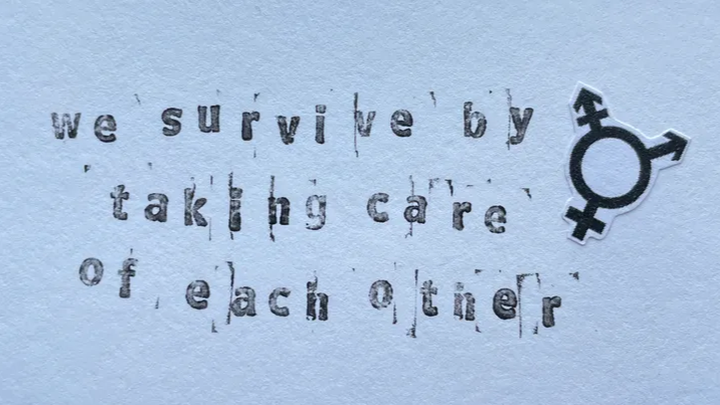 we survive by
taking care
of each other